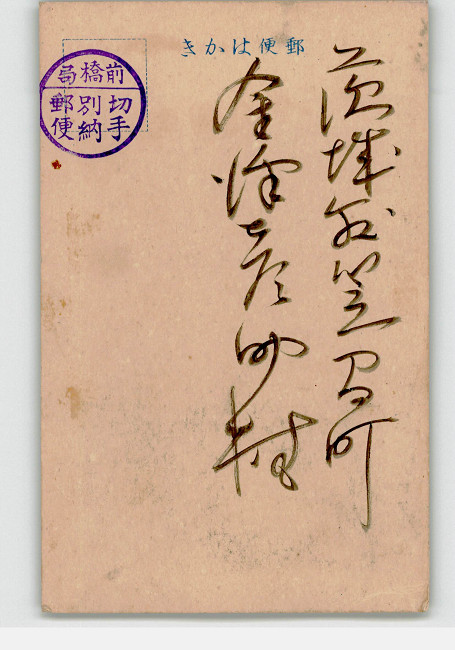 郵便はかき
前橋局
切手
別納
郵便
茨城縣笠間町
金澤彦 様